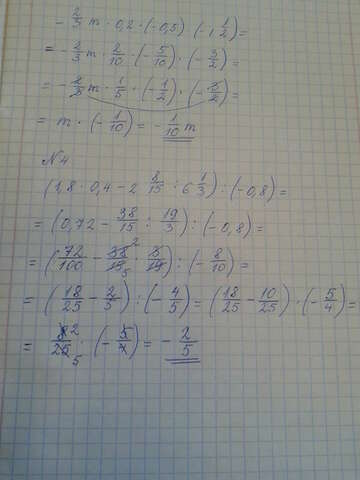 - 2/3 m · 0,2 · (-0,5) · (-1 1/2) =
= - 2/3 m · 2/10 · (- 5/10) · (- 3/2) =
= - 2/3 m · 1/5 · (- 1/2) · (- 3/2) =
= m · (- 1/10) = - 1/10 m
N4.
(1,8 · 0,4 - 2 8/15 : 6 1/3) : (-0,8) =
= (0,72 - 38/15 : 19/3) : (-0,8) =
= (72/100 - 38 2/15 5 · 3/19) : (- 8/10) =
= (18/25 - 2/5) : (- 4/5) = (18/25 - 10/25) · (- 5/4) =
= 8 2/25 5 · (- 5/4) = - 2/5